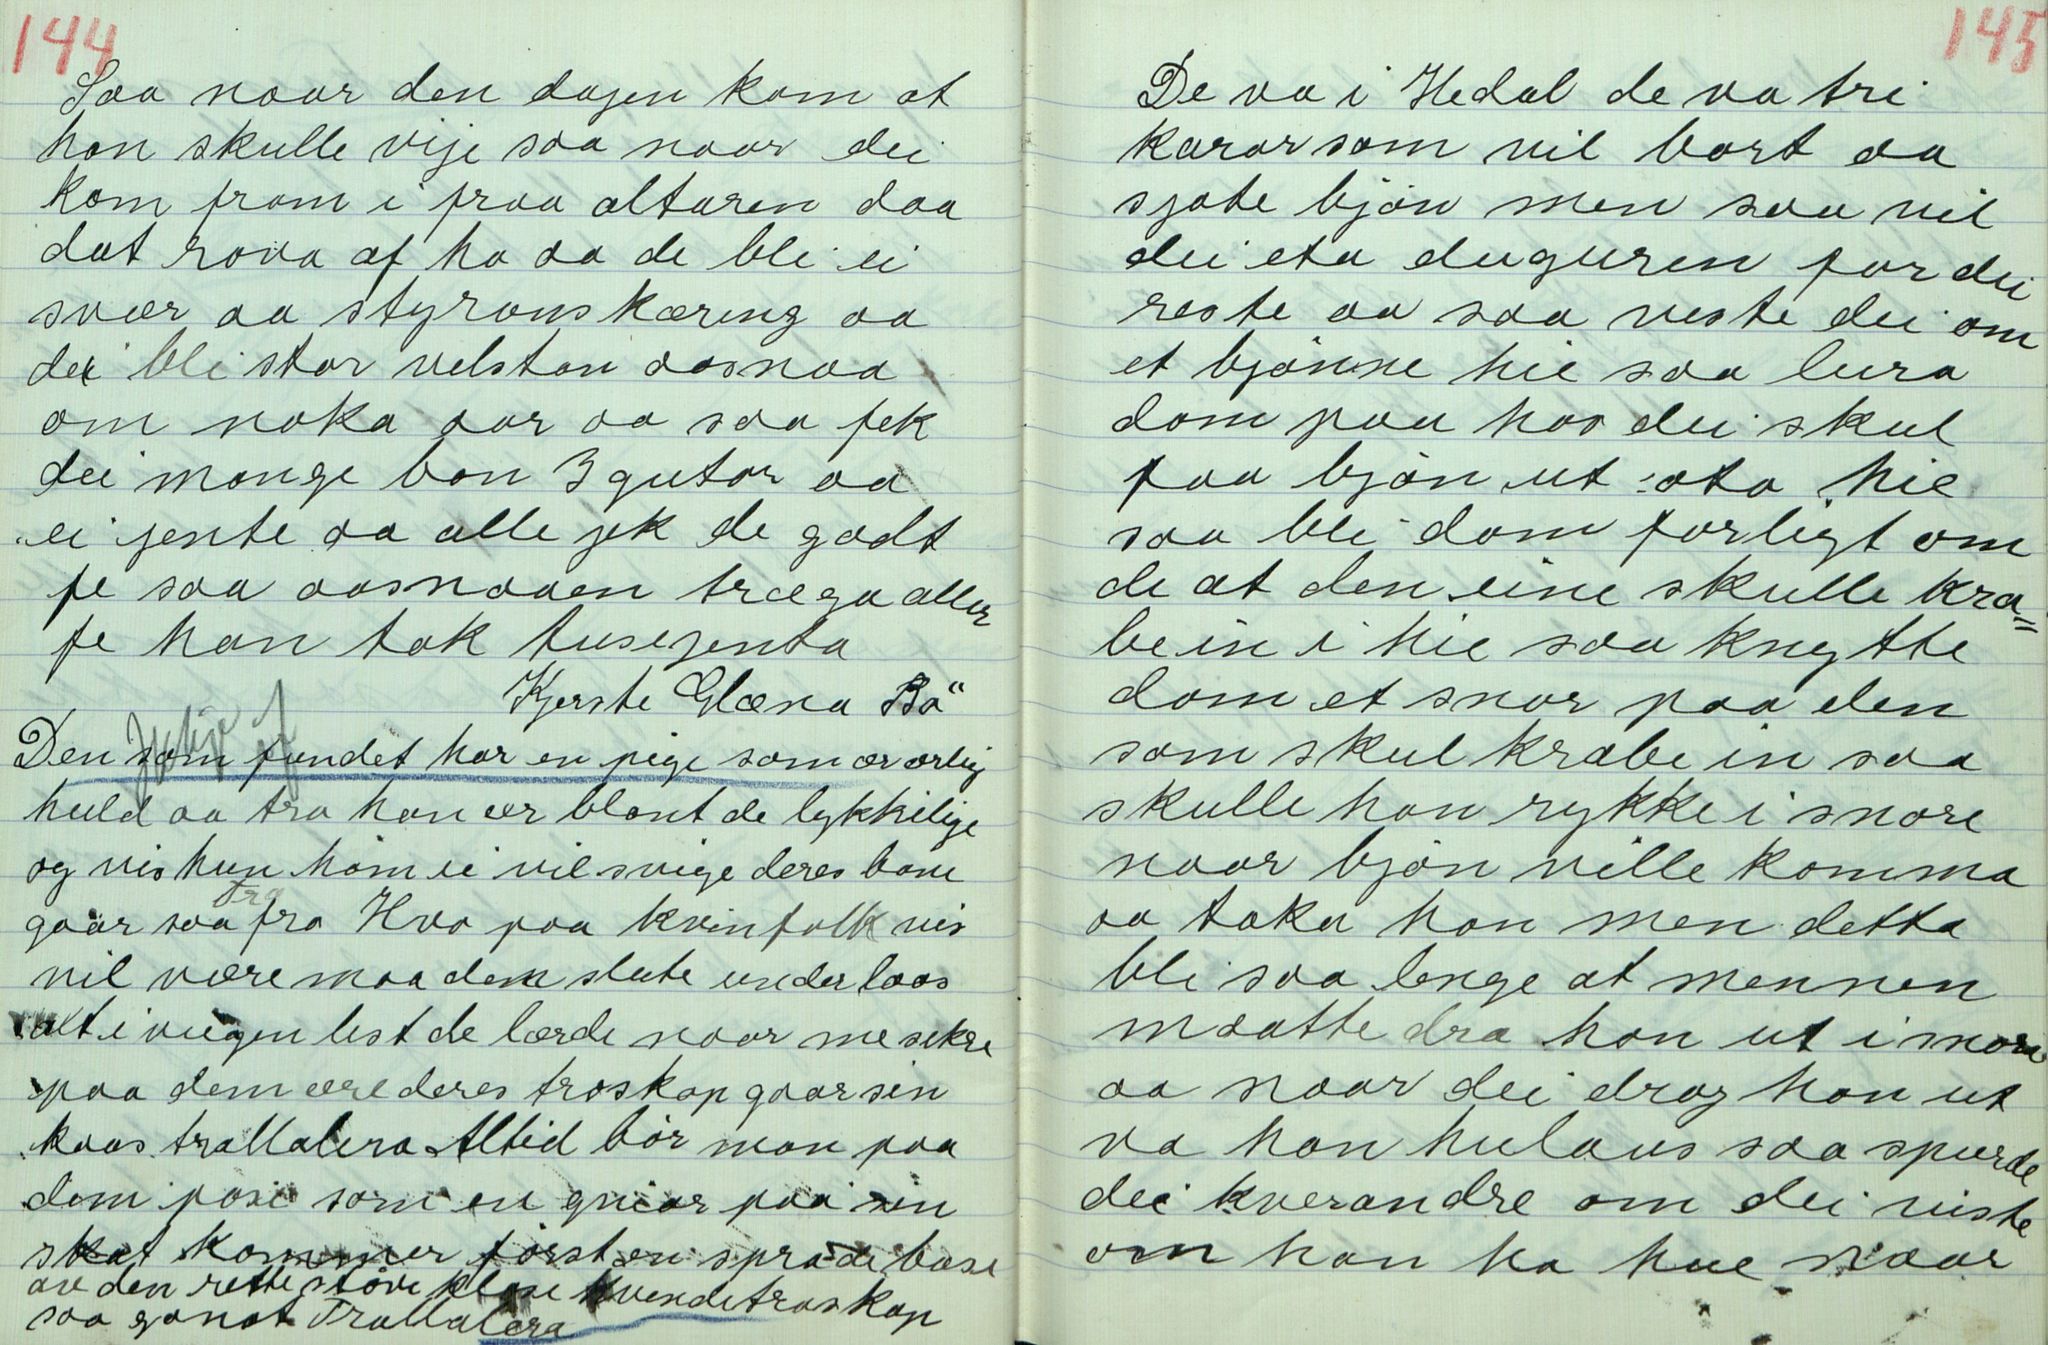 144
Saa naar den dagen kom at
han skulle vije saa naar dei
kom fram i fraa altaren daa
dat rova af ho aa de bli ei
svær aa styrans kæring aa
dei bli stor velstan aasnaa
om noka aar aa saa fek
dei mange ban 3 gutor aa
ei jente aa alle jek de godt
fe saa aasnaaen træga aller
fe han tok tusejenta
Kjerste Glæna Bö"
Den som fundet har en pige som ær ærlig
huld aa tro han ær blant de lykkelige
og vis hun ham ei vil svige deres bane
gaar saa fra Hvo paa kvinfolk vis
vil være maa dem slute under laas
alt i vugen lest de lærde naar me sikre
paa dem ære deres troskap gaar sin
kaas trallalera Altid bör man paa
dem pase som en gniar paa sin
skat kommer först en spradebase
av den rette störe kløse kvendetroskap
saa ganat Trallalera
145
De va i Hedal de va tri
karar som vil bort aa
sjote bjön men saa vil
dei eta duguren for dei
reste aa saa veste dei om
et bjönne hie saa lura
dom paa hos dei skul
faa bjön ut ota hie
saa bli dom forligt om
de at den eine skulle kra=
be in i hie saa knytte
dom et snor paa den
som skul krabe in saa
skulle han rykke i snore
naar bjön ville komma
aa taka han men detta
bli saa lenge at mennen
maatte dra han ut i snore
aa naar dei drog han ut
va han hulaus saa spurde
dei kverandre om dei viste
om han ha hue naar